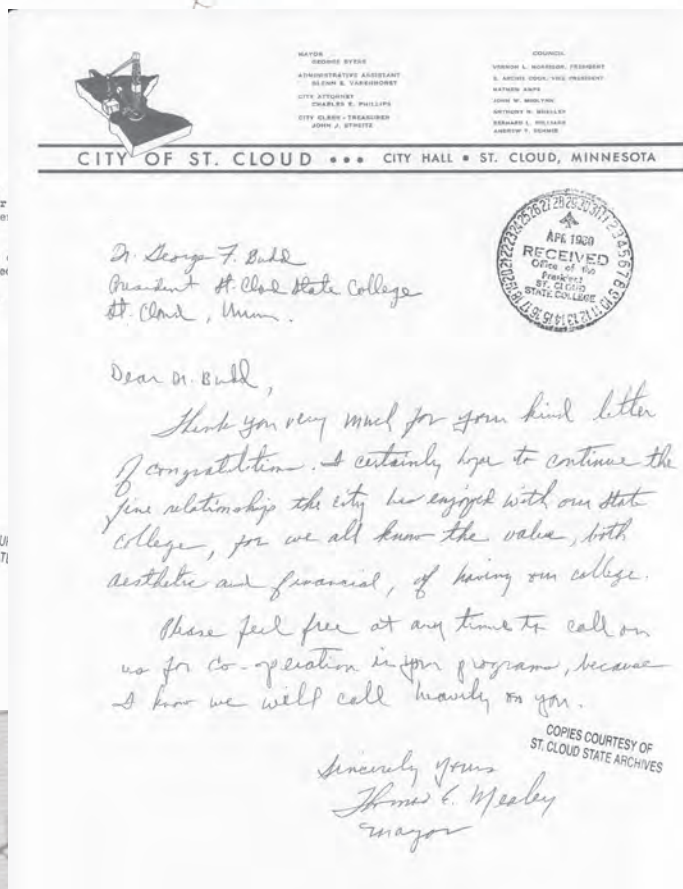 MAYOR
GEORGE BYERS
ADMINISTRATIVE ASSISTANT
GLENN E. VARENHORST
CITY ATTORNEY
CHARLES E. PHILLIPS
CITY CLERK - TREASURER
JOHN J. STREITZ
COUNCIL
VERNON L. MORRISON, PRESIDENT
S. ARCHIE COOK, VICE PRESIDENT
CITY OF ST. CLOUD ••• CITY HALL • ST. CLOUD, MINNESOTA
APR 1960
RECEIVED
Office of the
President
ST. CLOUD
STATE COLLEGE
Dr. George F. Budd
President St. Cloud State College
St. Cloud, Minn.
Dear Dr. Budd,
Thank you very much for your kind letter
of congratulations. I certainly hope to continue the
fine relationship the city has enjoyed with our State
College, for we all know the value, both
aesthetic and financial, of having our college.
Please feel free at any time to call on
us for co-operation in your programs, because
I know we will call heavily on you.
Sincerely yours
Thomas E. Mealey
Mayor
COPIES COURTESY OF
ST. CLOUD STATE ARCHIVES